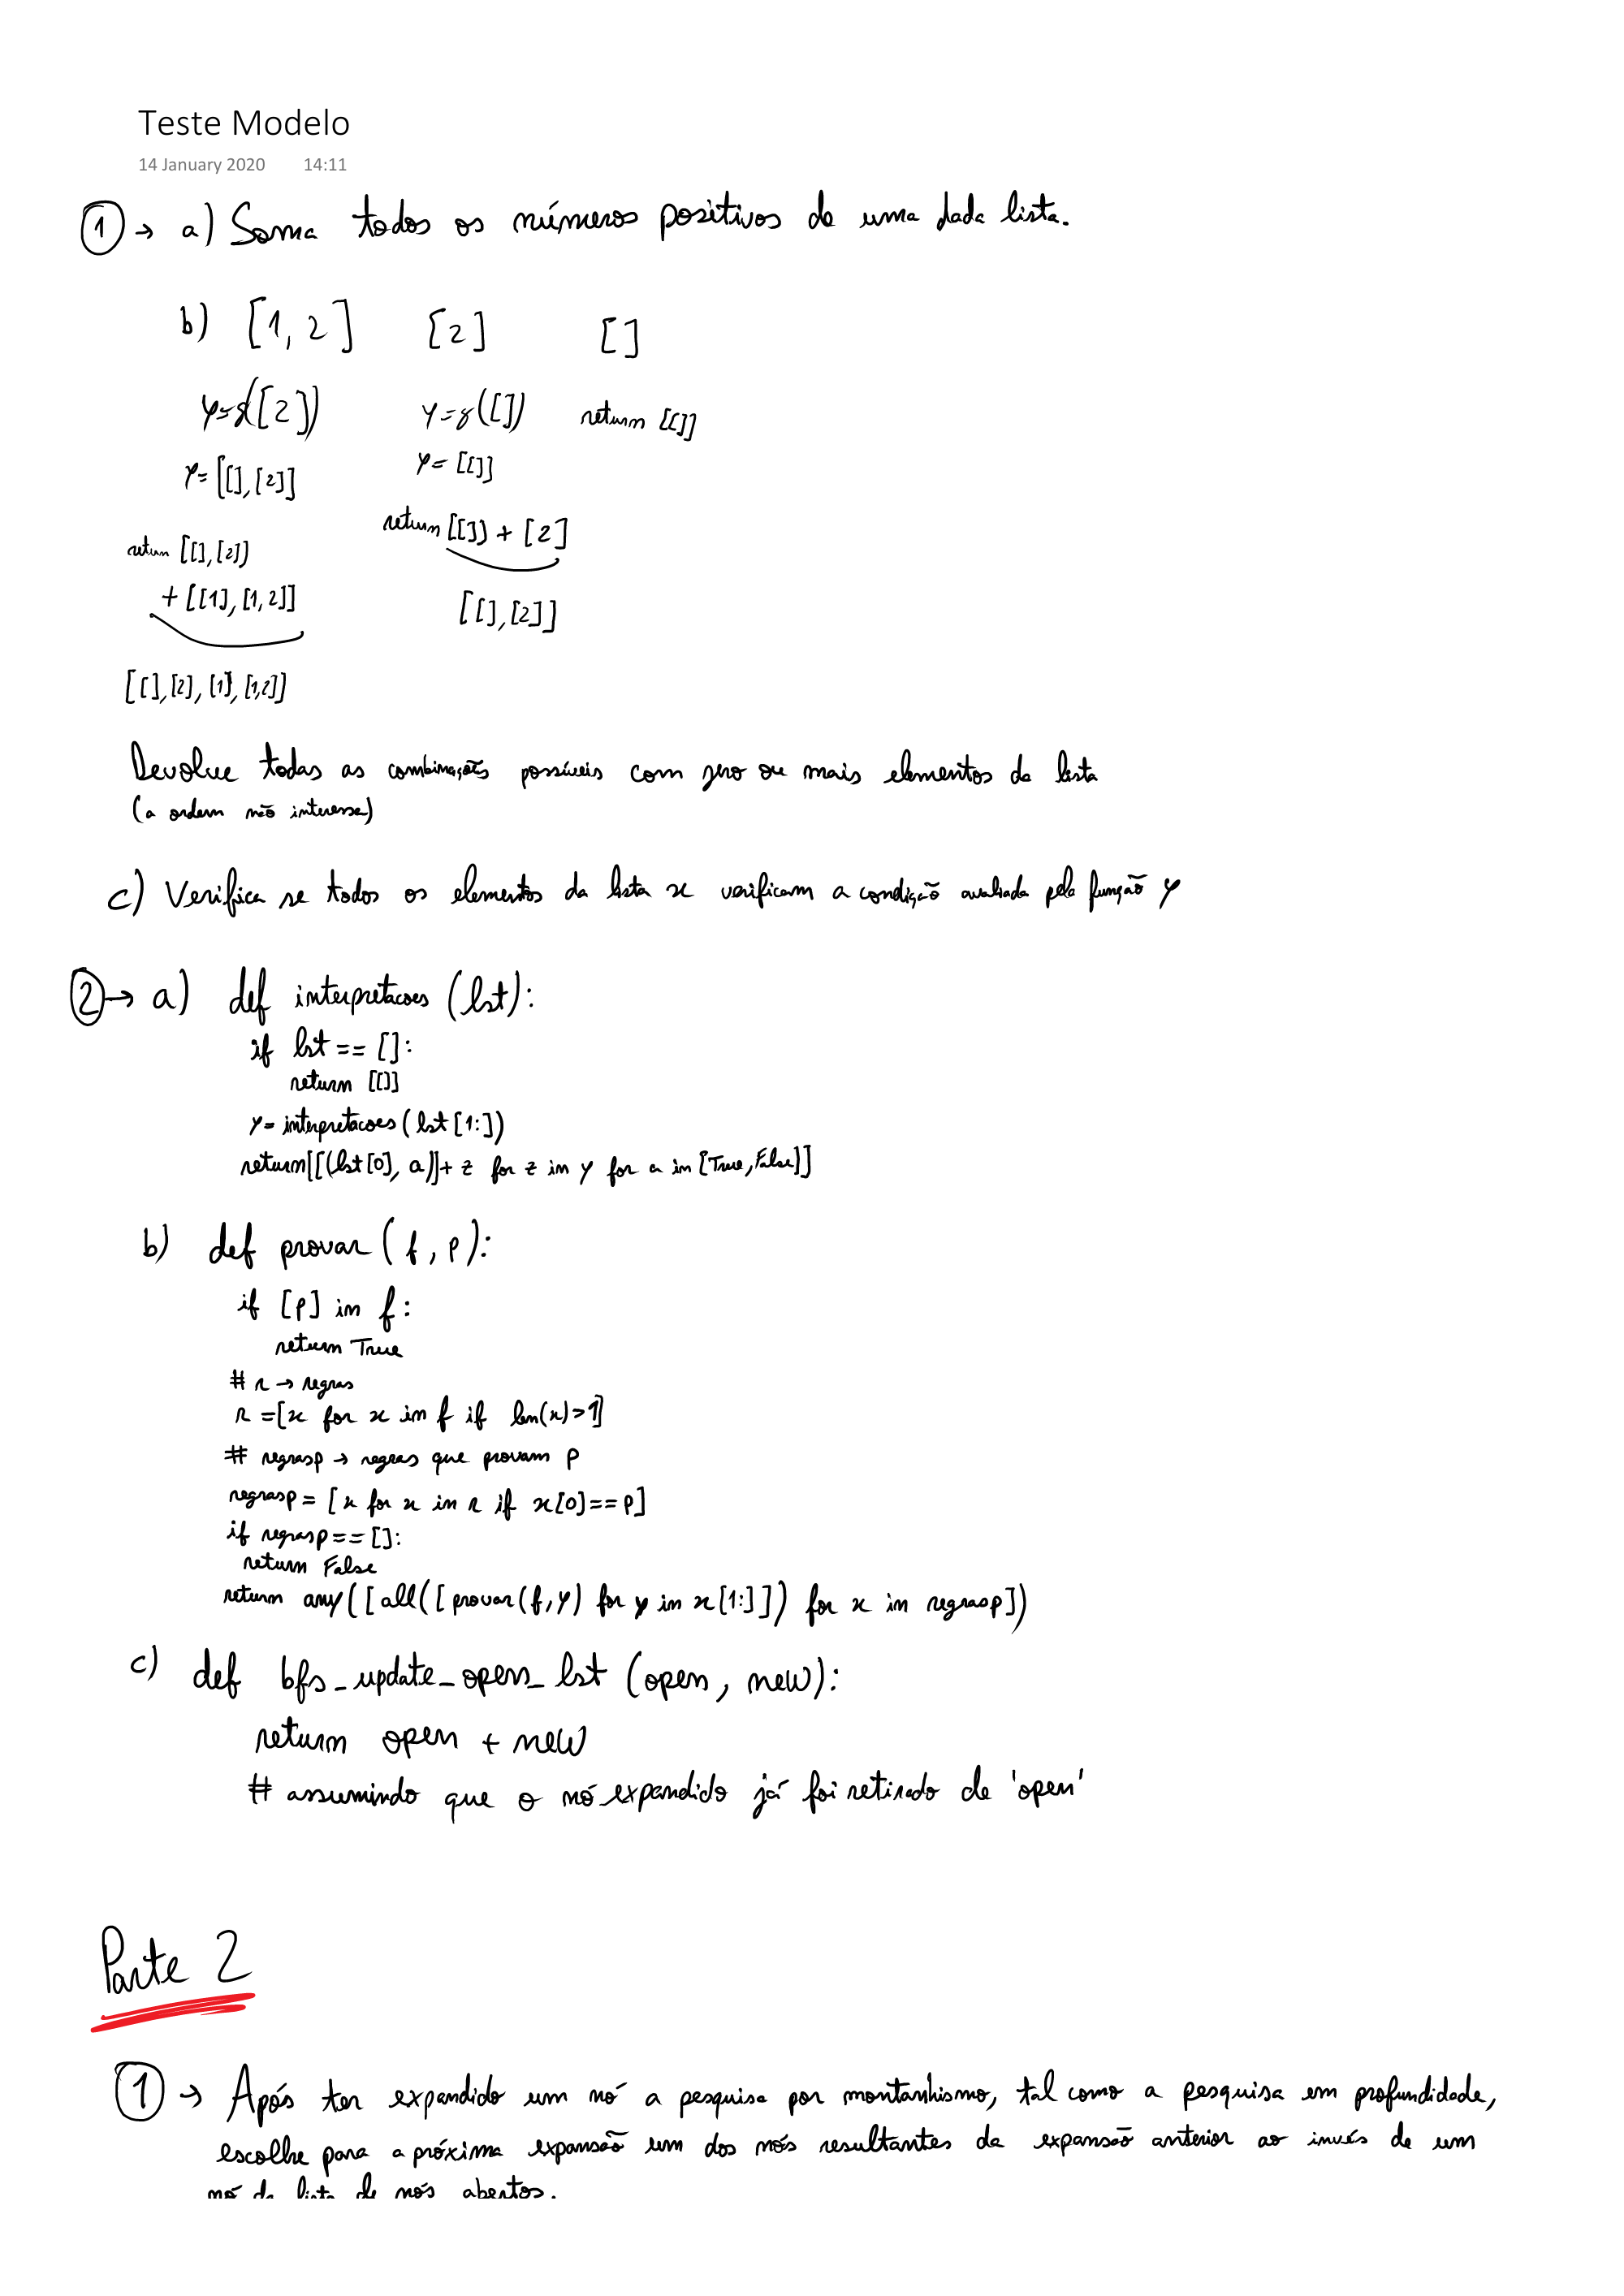 Teste Modelo
14 January 2020 14:11
1 → a) Soma todos os números positivos de uma dada lista.
b) [1, 2] [2] []
y=g([2]) y=g([]) return [[]]
y=[[],[2]] y=[[]]
return [[],[2]] return [[]] + [2]
+ [[1],[1,2]] [[],[2]]
[[],[2],[1],[1,2]]
Devolve todas as combinações possíveis com zero ou mais elementos da lista
(a ordem não interessa)
c) Verifica se todos os elementos da lista x verificam a condição avaliada pela função y
2 → a) def interpretacoes (lst):
if lst == []:
return [[]]
y= interpretacoes (lst [1:])
return[[(lst[0], a)]+ z for z in y for a in [True, False]]
b) def provar (f, p):
if [p] in f:
return True
# r → regras
r =[x for x in f if len(x)>1]
# regrasp → regras que provam p
regrasp = [x for x in r if x[0]==p]
if regrasp == []:
return False
return any([all([provar(f,y) for y in x[1:]]) for x in regrasp])
c) def bfs_update_open_lst (open, new):
return open + new
# assumindo que o nó expandido já foi retirado de 'open'
Parte 2
1 → Após ter expandido um nó a pesquisa por montanhismo, tal como a pesquisa em profundidade,
escolhe para a próxima expansão um dos nós resultantes da expansão anterior ao invés de um
nó da lista de nós abertos.